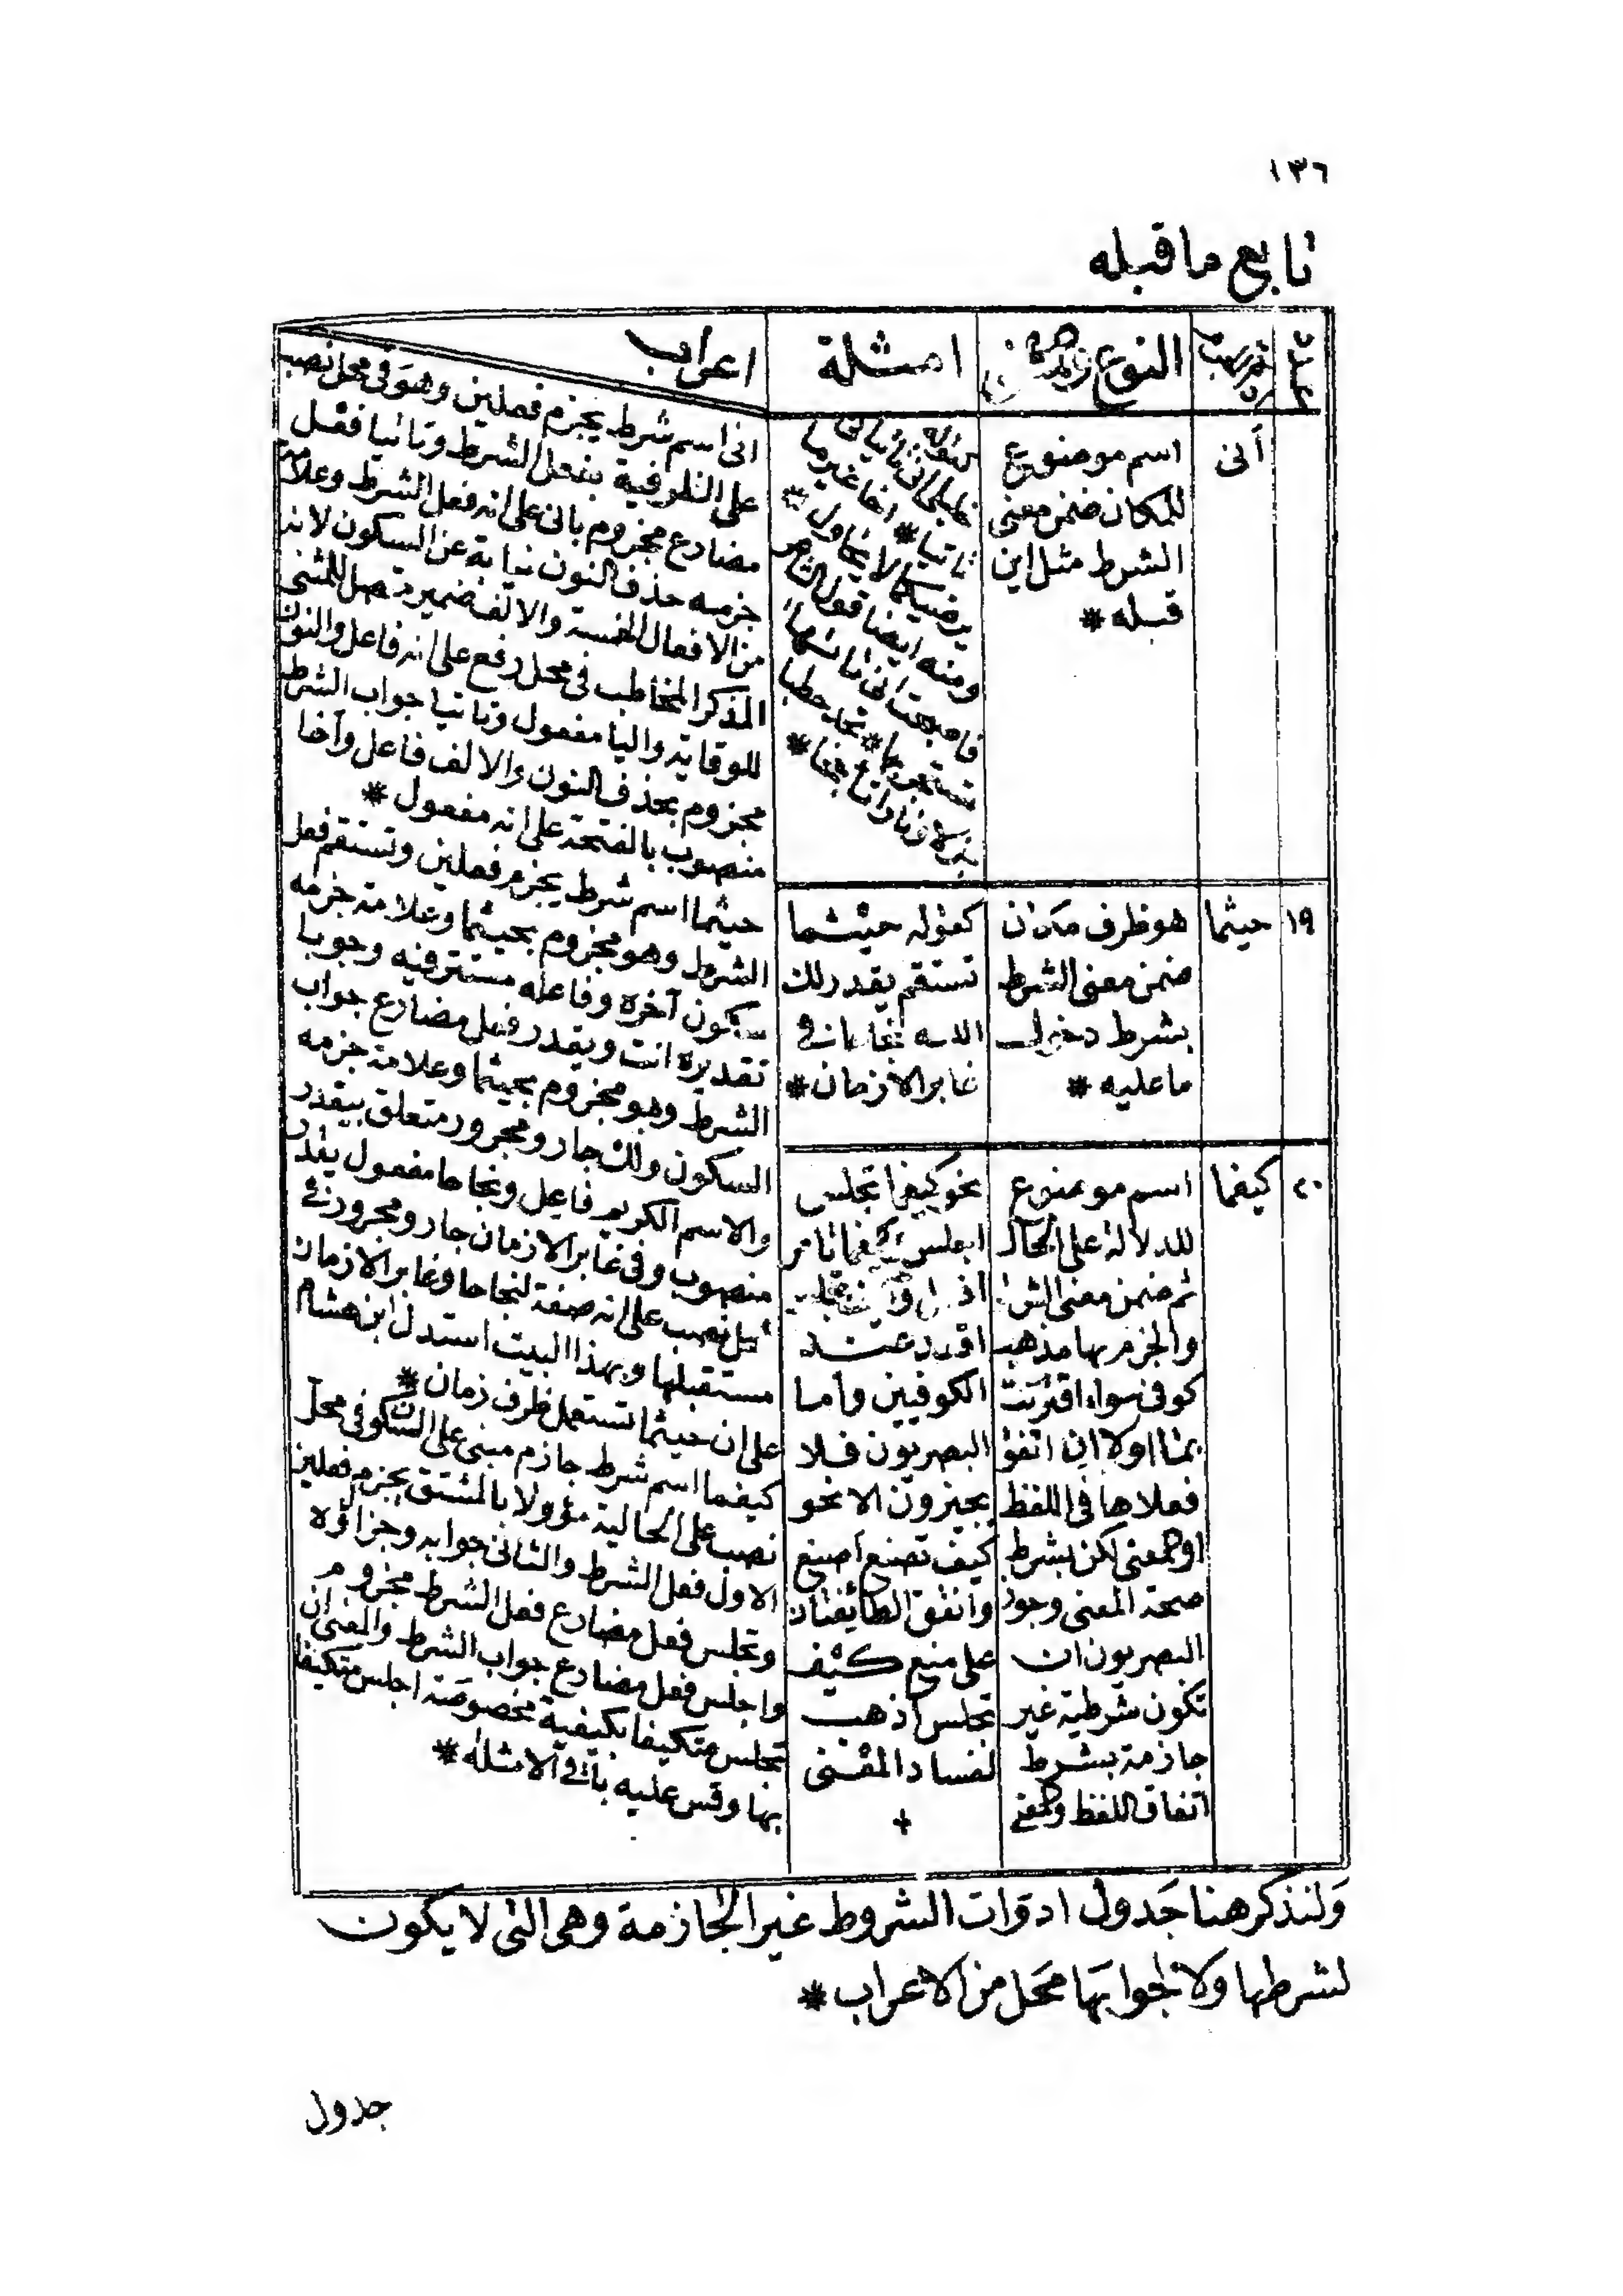 ١٣٦
تابع ما قبله
عدد
النوع والمعنى
امثلة
اعراب
أنى
اسم موضوع
للمكان ضمن معنى
الشرط مثل اين
قبله *
خليلي انى تاتياني
تاتيا * اخا غير ما
يرضيكما لا يحاول *
ومنه ايضا قول الشاعر
فاصبحت انى تاتها
تستجر بها * تجد حطبا
جزلا ونارا تاججا *
انى اسم شرط يجزم فعلين وهو فى محل نصب
على الظرفية بفعل الشرط وتاتيا فعل
مضارع مجزوم بانى على انه فعل الشرط وعلامة
جزمه حذف النون نيابة عن السكون لانه
من الافعال الخمسة والالف ضمير متصل للمثنى
المذكر المخاطب فى محل رفع على انه فاعل والنون
للوقاية واليا مفعول وتاتيا جواب الشرط
مجزوم بحذف النون والالف فاعل وأخا
منصوب بالفتحة على انه مفعول *
١٩
حيثما
هو ظرف مكان
ضمن معنى الشرط
بشرط دخول
ما عليه *
كقوله حيثما
تستقم يقدر لك
الله نجاحا فى
غابر الازمان *
حيثما اسم شرط يجزم فعلين وتستقم فعل
الشرط وهو مجزوم بحيثما وعلامة جزمه
سكون آخره وفاعله مستتر فيه وجوبا
تقديره انت ويقدر فعل مضارع جواب
الشرط وهو مجزوم بحيثما وعلامة جزمه
السكون ولك جار ومجرور متعلق بيقدر
والاسم الكريم فاعل ونجاحا مفعول يقدر
منصوب وفى غابر الازمان جار ومجرور فى
محل نصب على انه صفة لنجاحا وغابر الازمان
مستقبلها وبهذا البيت استدل ابن هشام
على ان حيثما تستعمل ظرف زمان *
٢٠
كيفما
اسم موضوع
للدلالة على الحال
ثم ضمن معنى الشرط
والجزم بها مذهب
كوفى سواء اقترنت
بما او لا ان اتفق
فعلاها فى اللفظ
او المعنى لكن بشرط
صحة المعنى وجوز
البصريون ان
تكون شرطية غير
جازمة بشرط
اتفاق اللفظ والمعنى
نحو كيفما تجلس
اجلس
الكوفيين واما
البصريون فلا
يجيزون الا نحو
كيف تصنع اصنع
واتفق الطائفتان
على منع كيف
تجلس اذهب
لفساد المعنى
+
كيفما اسم شرط جازم مبنى على السكون فى محل
نصب على الحالية مؤولا بالمشتق يجزم فعلين
الاول فعل الشرط والثانى جوابه وجزاؤه
وتجلس فعل مضارع فعل الشرط مجزوم
واجلس فعل مضارع جواب الشرط والمعنى ان
تجلس متكيفا بكيفية مخصوصة اجلس متكيفا
بها وقس عليه باقى الامثله *
وَلنذكر هنا جَدول ادوات الشروط غير الجازمة وهى التى لا يكون
لشرطها ولا لجوابها محَل من الاعراب *
جدول